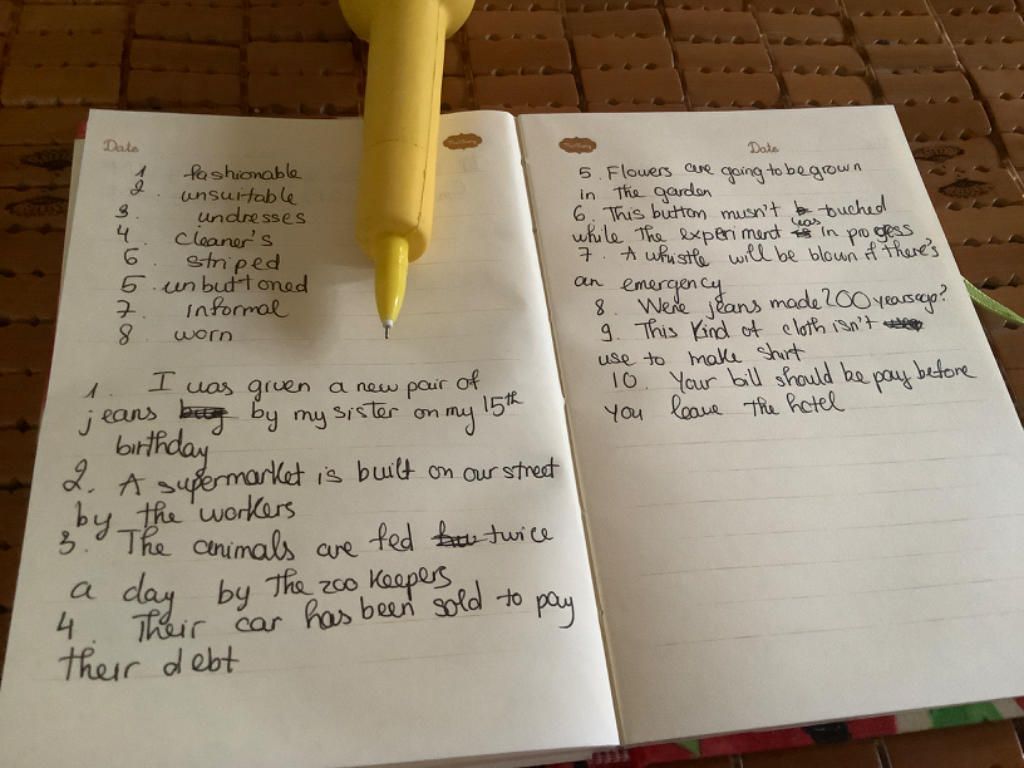 Date
1 fashionable
2. unsuitable
3. undresses
4. cleaner's
6. striped
5. unbuttoned
7. informal
8 worn
1. I was given a new pair of
jeans by my sister on my 15th
birthday
2. A supermarket is built on our street
by the workers
3. The animals are fed twice
a day by the zoo keepers
4. Their car has been sold to pay
their debt
Date
5. Flowers are going to be grown
in the garden
6. This button musn't touched
while the experiment was in progess
7. A whistle will be blown if there's
an emergency
8. Were jeans made 200 years ago?
9. This kind of cloth isn't
use to make shirt
10. Your bill should be pay before
you leave the hotel